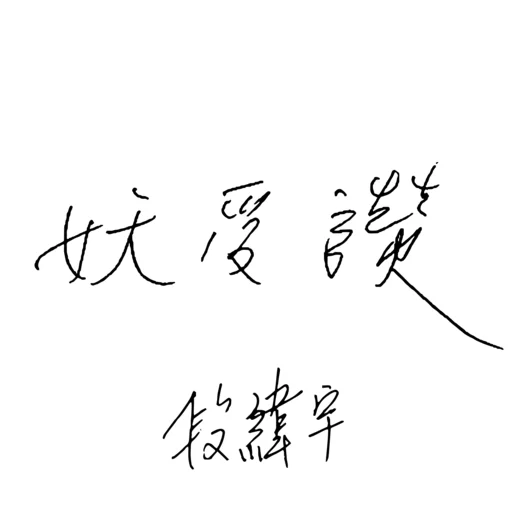 妖受讚
段緯宇